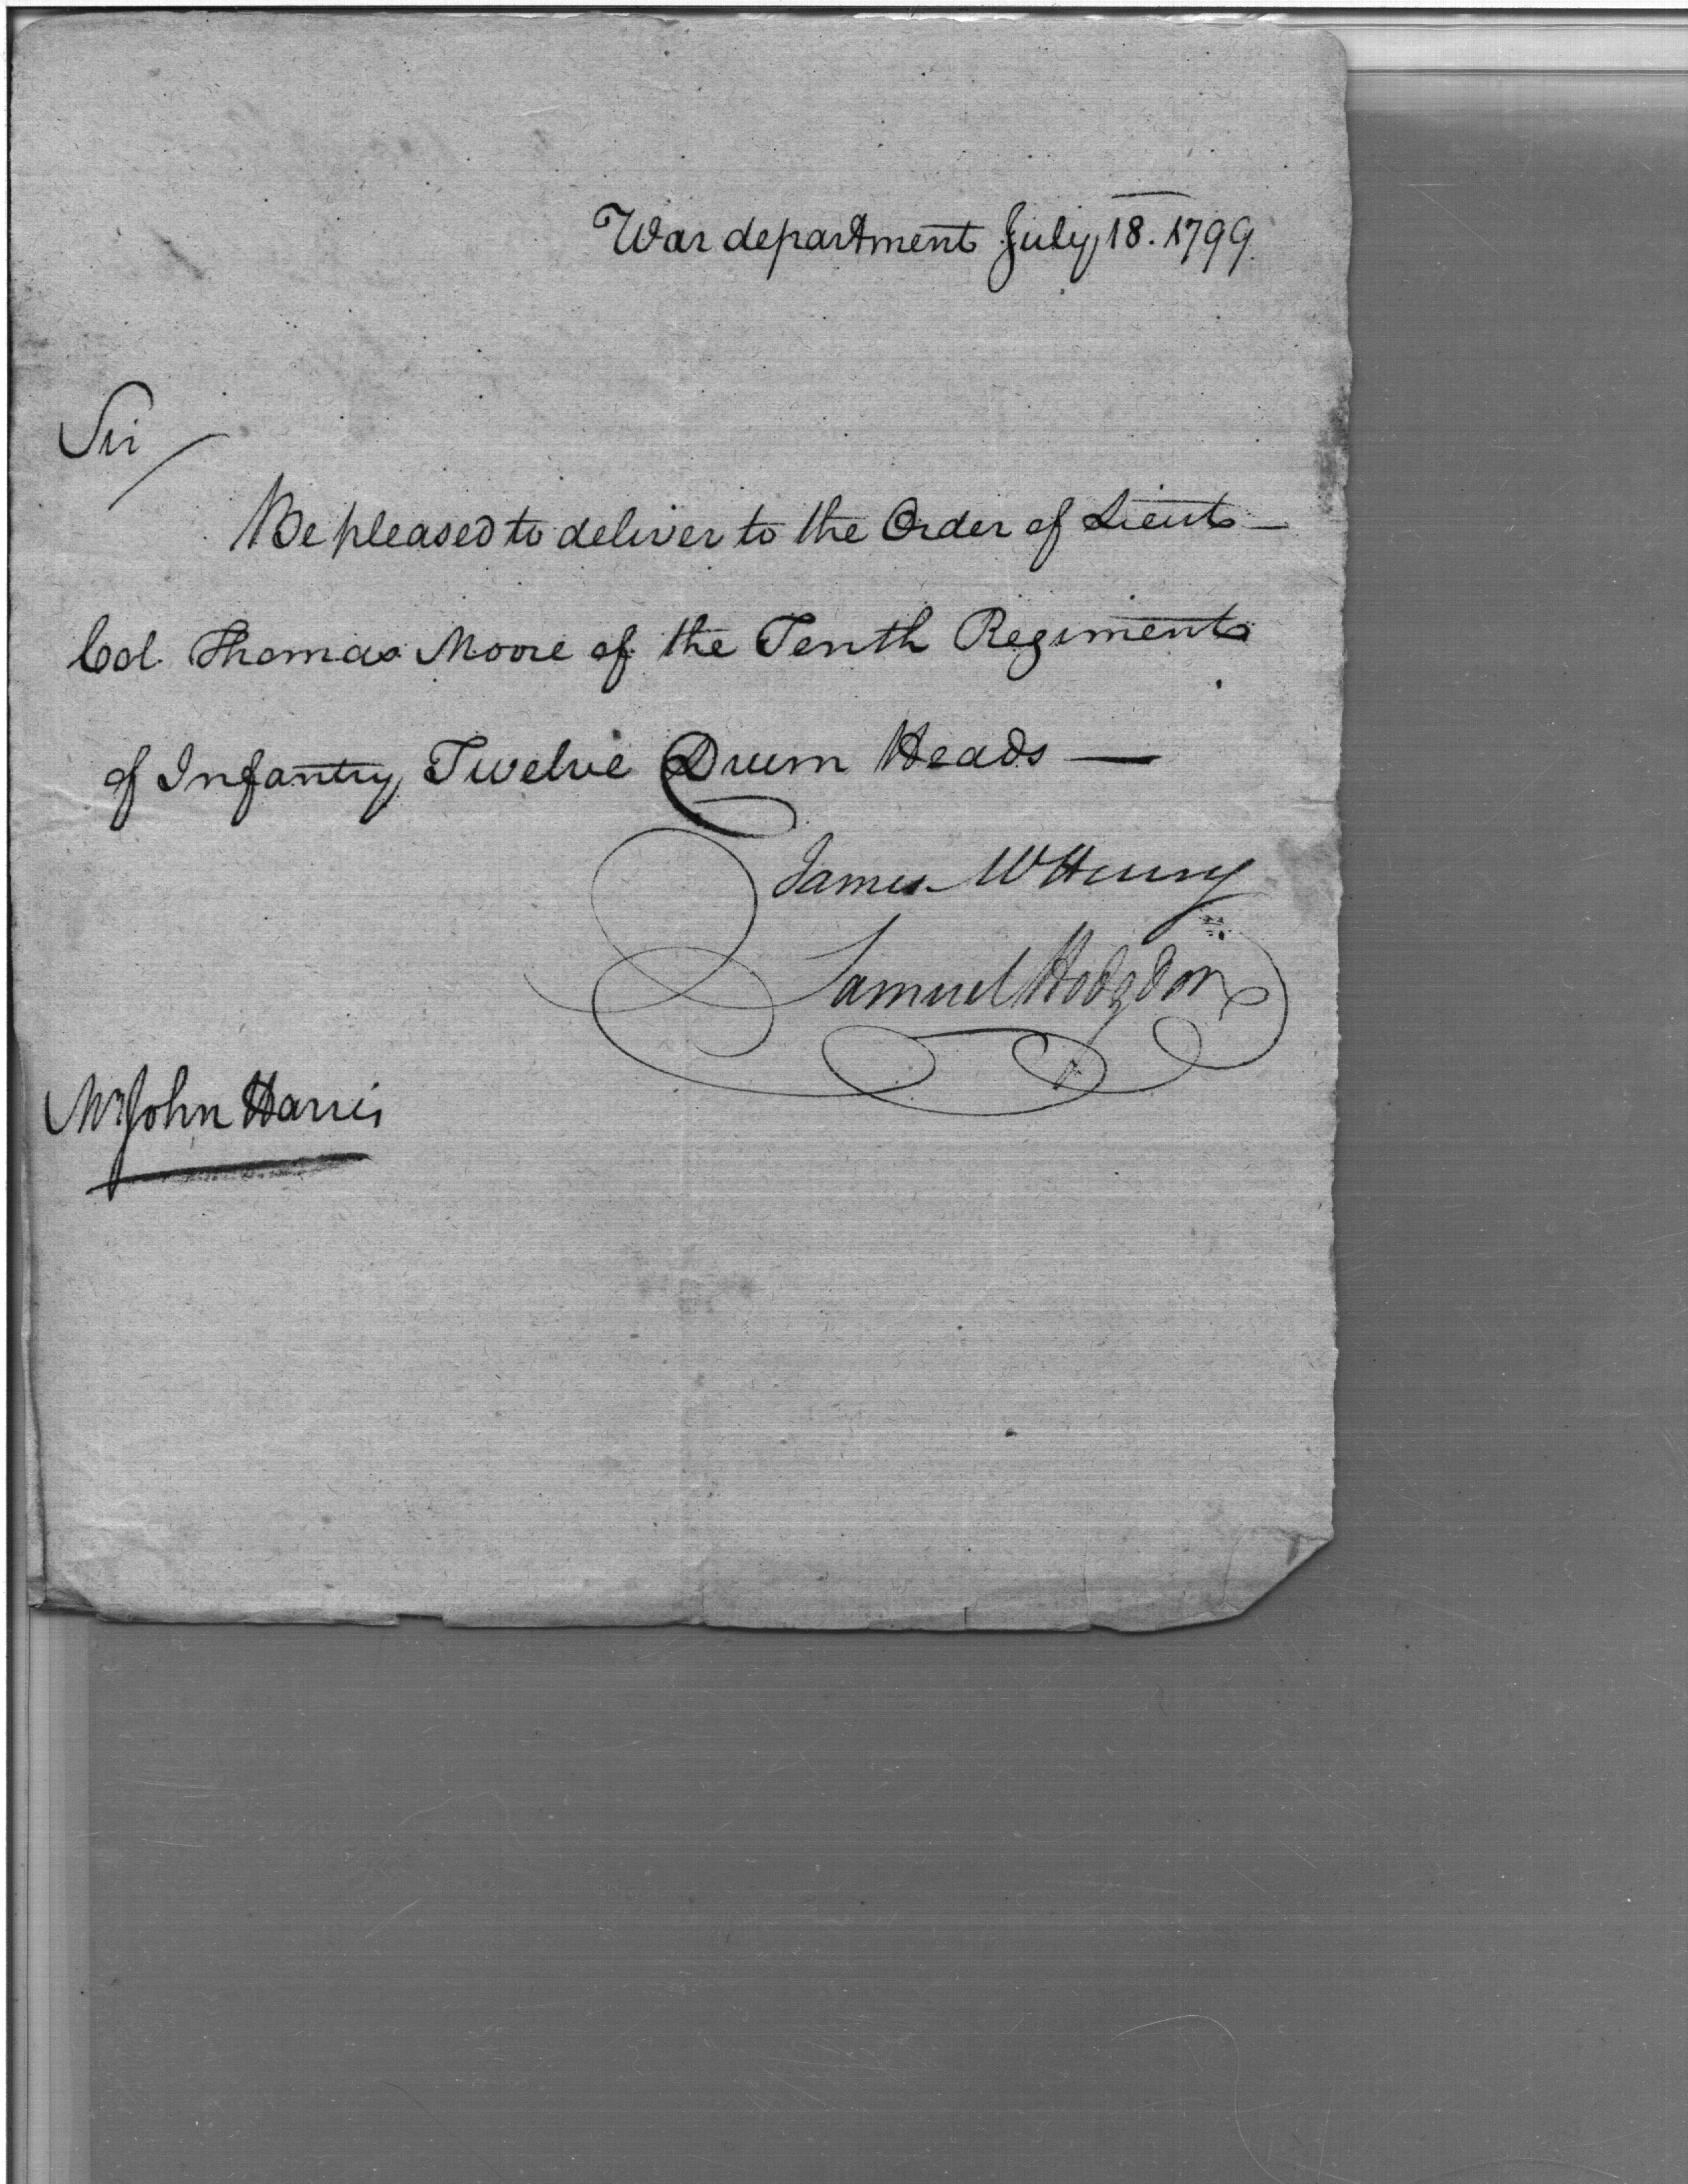 War department July 18. 1799.
Sir
Be pleased to deliver to the Order of Lieut
Col. Thomas Moore of the Tenth Regiment
of Infantry, Twelve Drum Heads —
James McHenry
Samuel Hodgdon
Mr John Harris